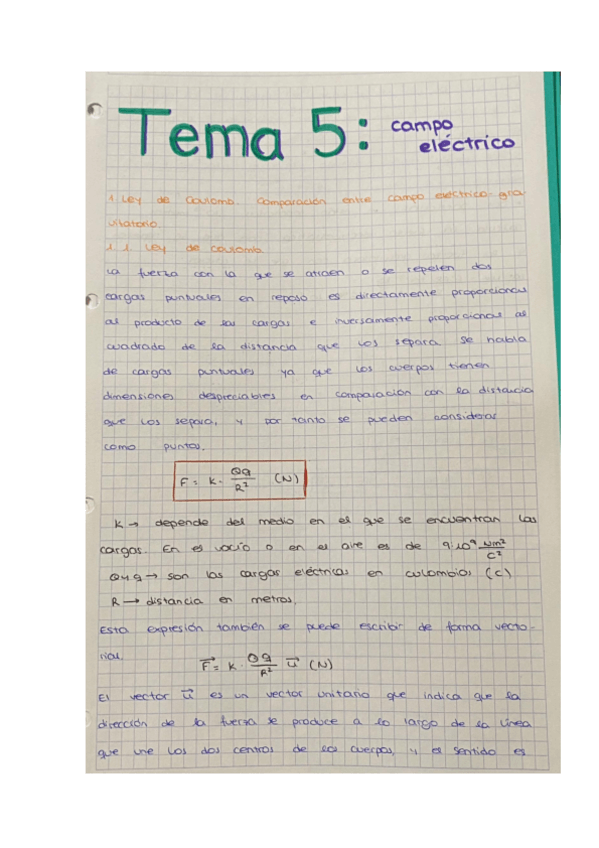 Tema 5: campo
eléctrico
1. Ley de Coulomb. Comparación entre campo eléctrico-gra
vitatorio.
1.1 Ley de Coulomb.
La fuerza con la que se atraen o se repelen dos
cargas puntuales en reposo es directamente proporcional
al producto de las cargas e inversamente proporcional al
cuadrado de la distancia que los separa. Se habla
de cargas puntuales ya que los cuerpos tienen
dimensiones despreciables en comparación con la distancia
que los separa, y por tanto se pueden considerar
como puntos.
F = K · Qq/R² (N)
K → depende del medio en el que se encuentran las
cargas. En el vacío o en el aire es de 9·10⁹ Nm²/C²
Q y q → son las cargas eléctricas en culombios (C)
R → distancia en metros.
Esta expresión también se puede escribir de forma vecto-
rial.
F⃗ = K · Qq/R² u⃗ (N)
El vector u⃗ es un vector unitario que indica que la
dirección de la fuerza se produce a lo largo de la línea
que une los dos centros de los cuerpos, y el sentido es